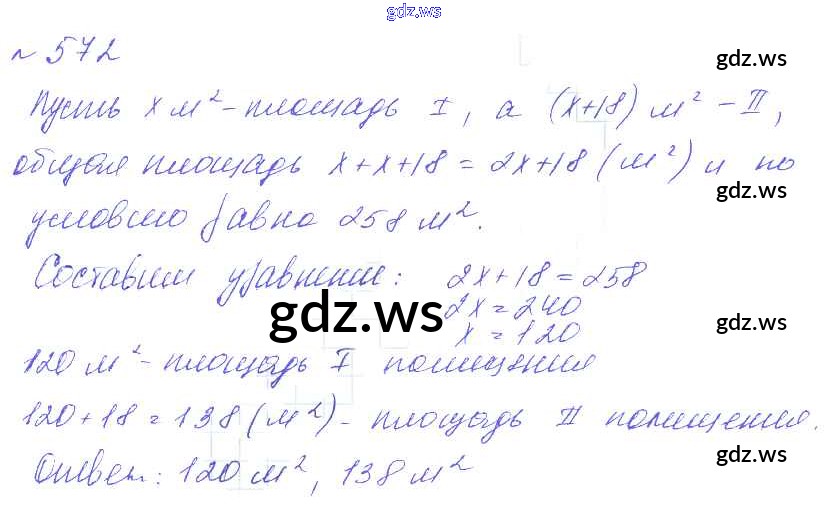 gdz.ws
№ 572
gdz.ws
Пусть x м² - площадь I, а (x+18) м² - II,
общая площадь x+x+18 = 2x+18 (м²) и по
gdz.ws
условию равно 258 м².
Составим уравнение: 2x+18=258
2x=240
gdz.ws
gdz.ws
x=120
120 м² - площадь I помещения
120+18=138 (м²) - площадь II помещения.
gdz.ws
Ответ: 120 м², 138 м²